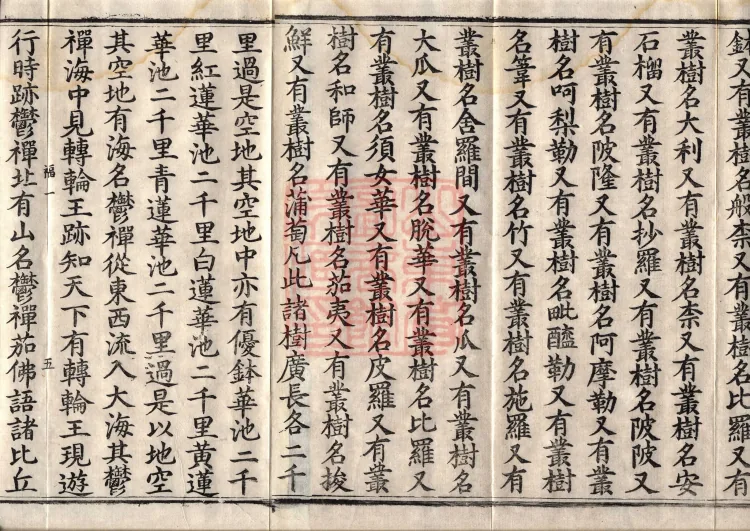 鉢又有叢樹名般柰又有叢樹名比羅又有
叢樹名大利又有叢樹名柰又有叢樹名安
石榴又有叢樹名抄羅又有叢樹名陂陂又
有叢樹名陂隆又有叢樹名阿摩勒又有叢
樹名呵梨勒又有叢樹名毗醯勒又有叢樹
名葦又有叢樹名竹又有叢樹名施羅又有
叢樹名舍羅間又有叢樹名瓜又有叢樹名
大瓜又有叢樹名脫華又有叢樹名比羅又
有叢樹名須女華又有叢樹名皮羅又有叢
樹名和師又有叢樹名茄夷又有叢樹名捘
鮮又有叢樹名蒲萄凡此諸樹廣長各二千
里過是空地其空地中亦有優鉢華池二千
里紅蓮華池二千里白蓮華池二千里黃蓮
華池二千里青蓮華池二千里過是以地空
其空地有海名鬱禪從東西流入大海其鬱
禪海中見轉輪王跡知天下有轉輪王現遊
福一 五
行時跡鬱禪北有山名鬱禪茄佛語諸比丘